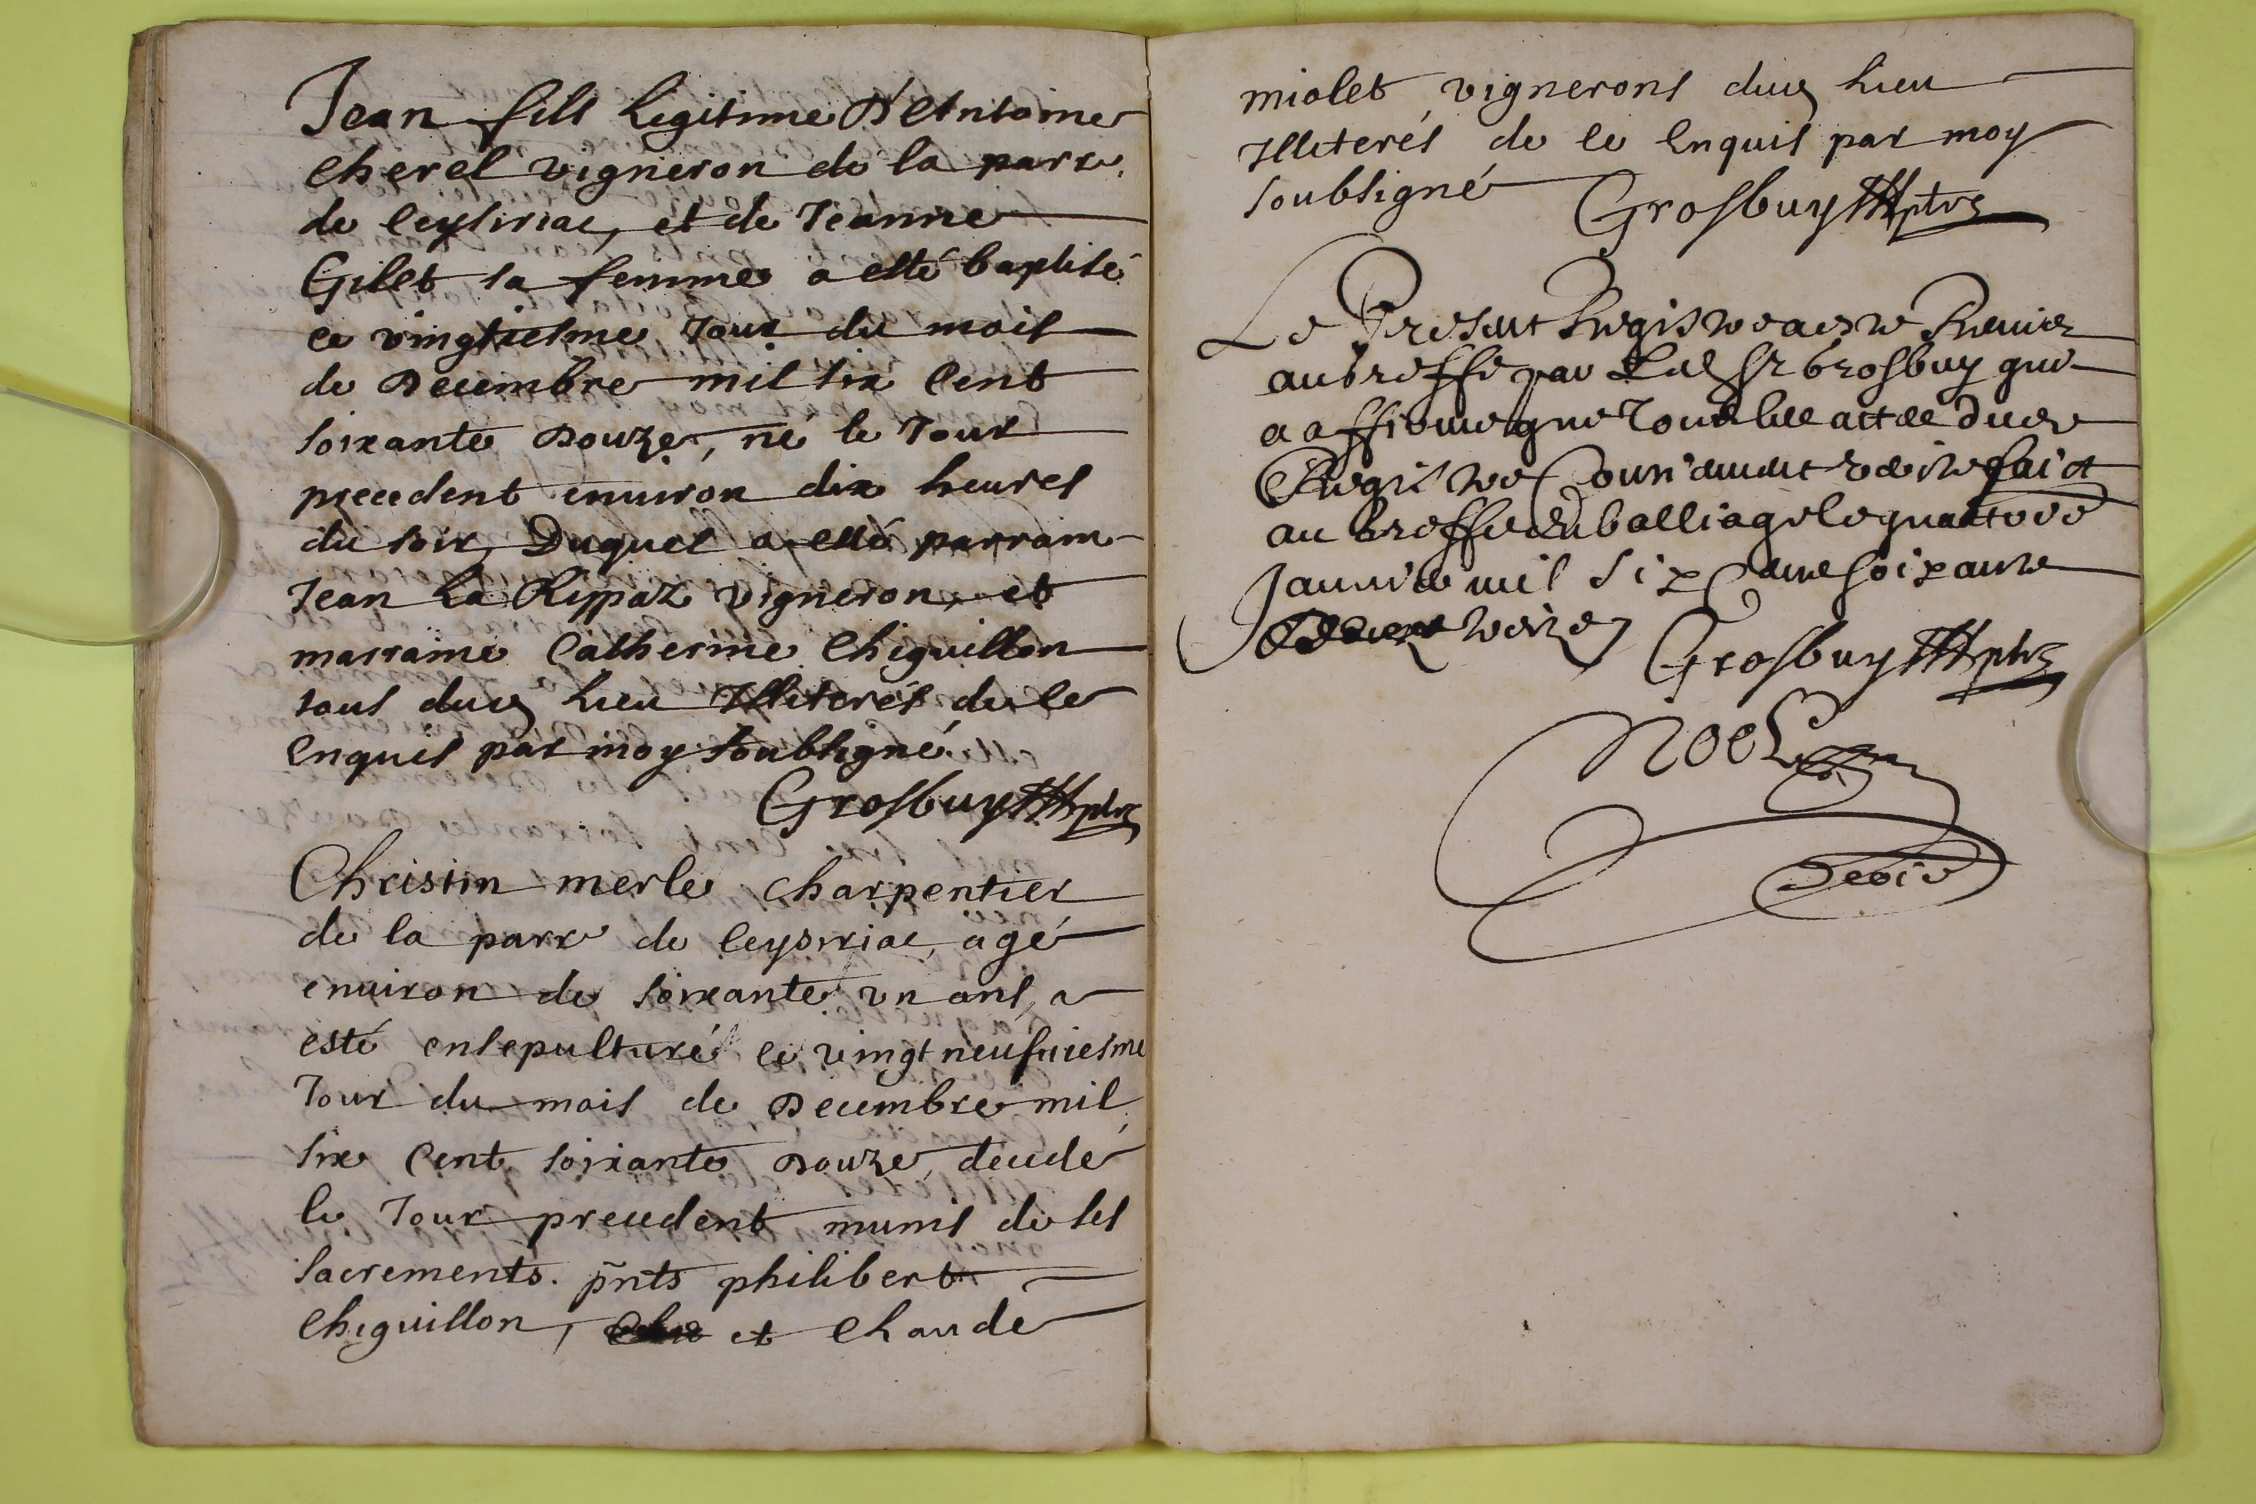 Jean fils Legitime D'Antoine
Cherel vigneron de la parr.
de Ceysiriac, et de Jeanne
Gilet sa femme a esté baptisé
ce vingtiesme Jour du mois
de Decembre mil six Cent
soixante Douze, né le Jour
precedent environ dix heures
du soir, Duquel a esté parrain
Jean La Rippaz vigneron, et
marraine Catherine Chiguillon
tous dud Lieu Illiterés de ce
Enquis par moy soubsigné.
Grosbuy ptre
Christin merle charpentier
de la parr de Ceysiriac, agé
environ de soixante un ans, a
esté ensepulturé ce vingt neufviesme
Jour du mois de Decembre mil
six Cent soixante Douze, decedé
le Jour precedent munis de ses
Sacrements. pnts philibert
Chiguillon, et Claude
miolet vignerons dud Lieu
Illiterés de ce Enquis par moy
soubsigné Grosbuy ptre
Le Present Registre a este Remis
au Greffe par Led Sr Grosbuy qui
a affirmé que Tous les actes dud
Registre Contiennent verité faict
au Greffe du balliage le quatorze
Janvier mil Six Cent soixante
treize
Grosbuy ptre
Noel